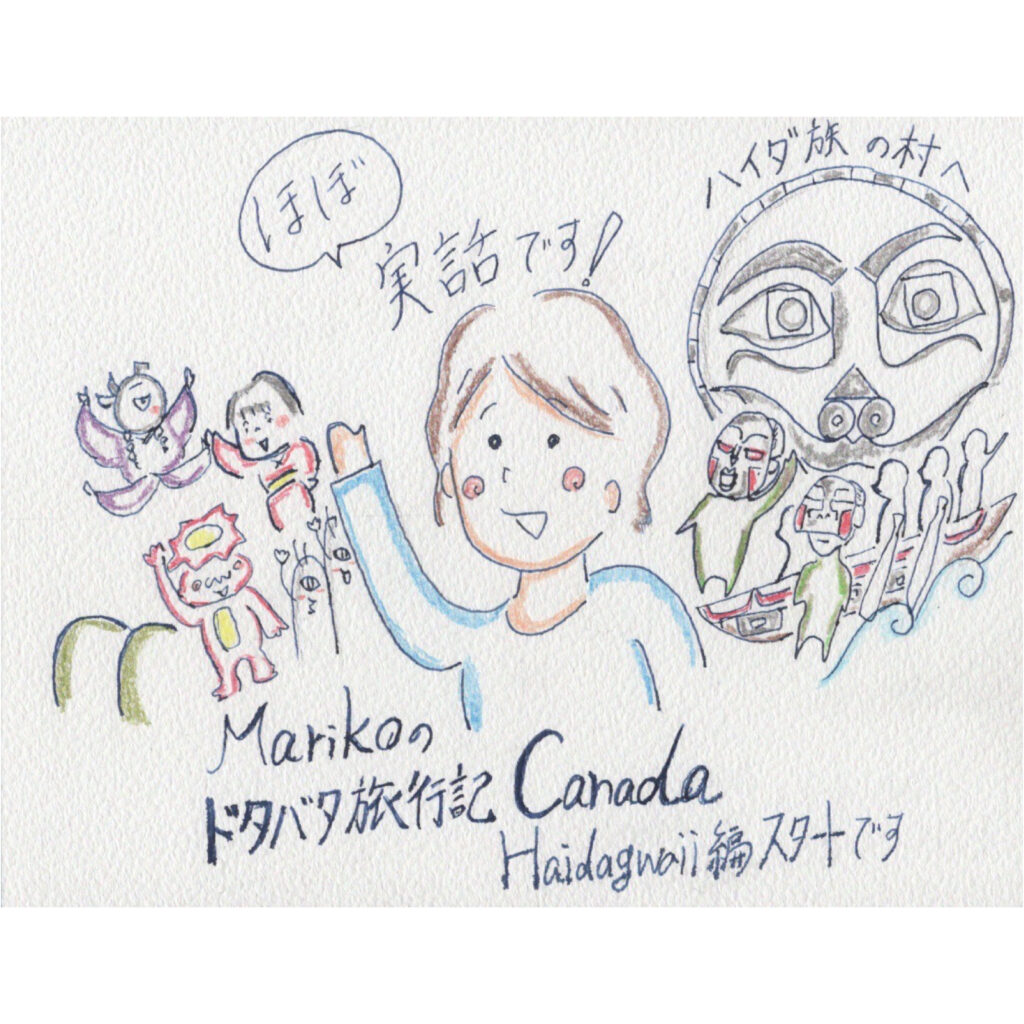 ほぼ
実話です!
ハイダ族の村へ
Marikoの
ドタバタ旅行記 Canada
Haidagwaii編スタートです